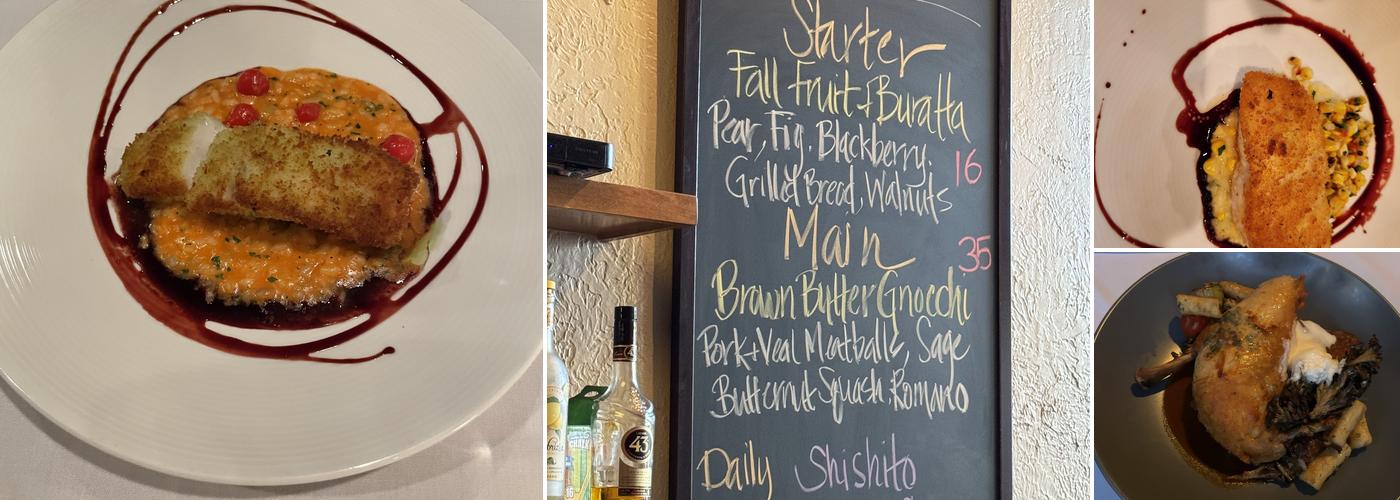 Starter
Fall Fruit + Buratta
Pear, Fig, Blackberry.
Grilled Bread, Walnuts
16
Main
35
Brown Butter Gnocchi
Pork + Veal Meatballs, Sage
Butternut Squash, Romano
Daily Shishito
43